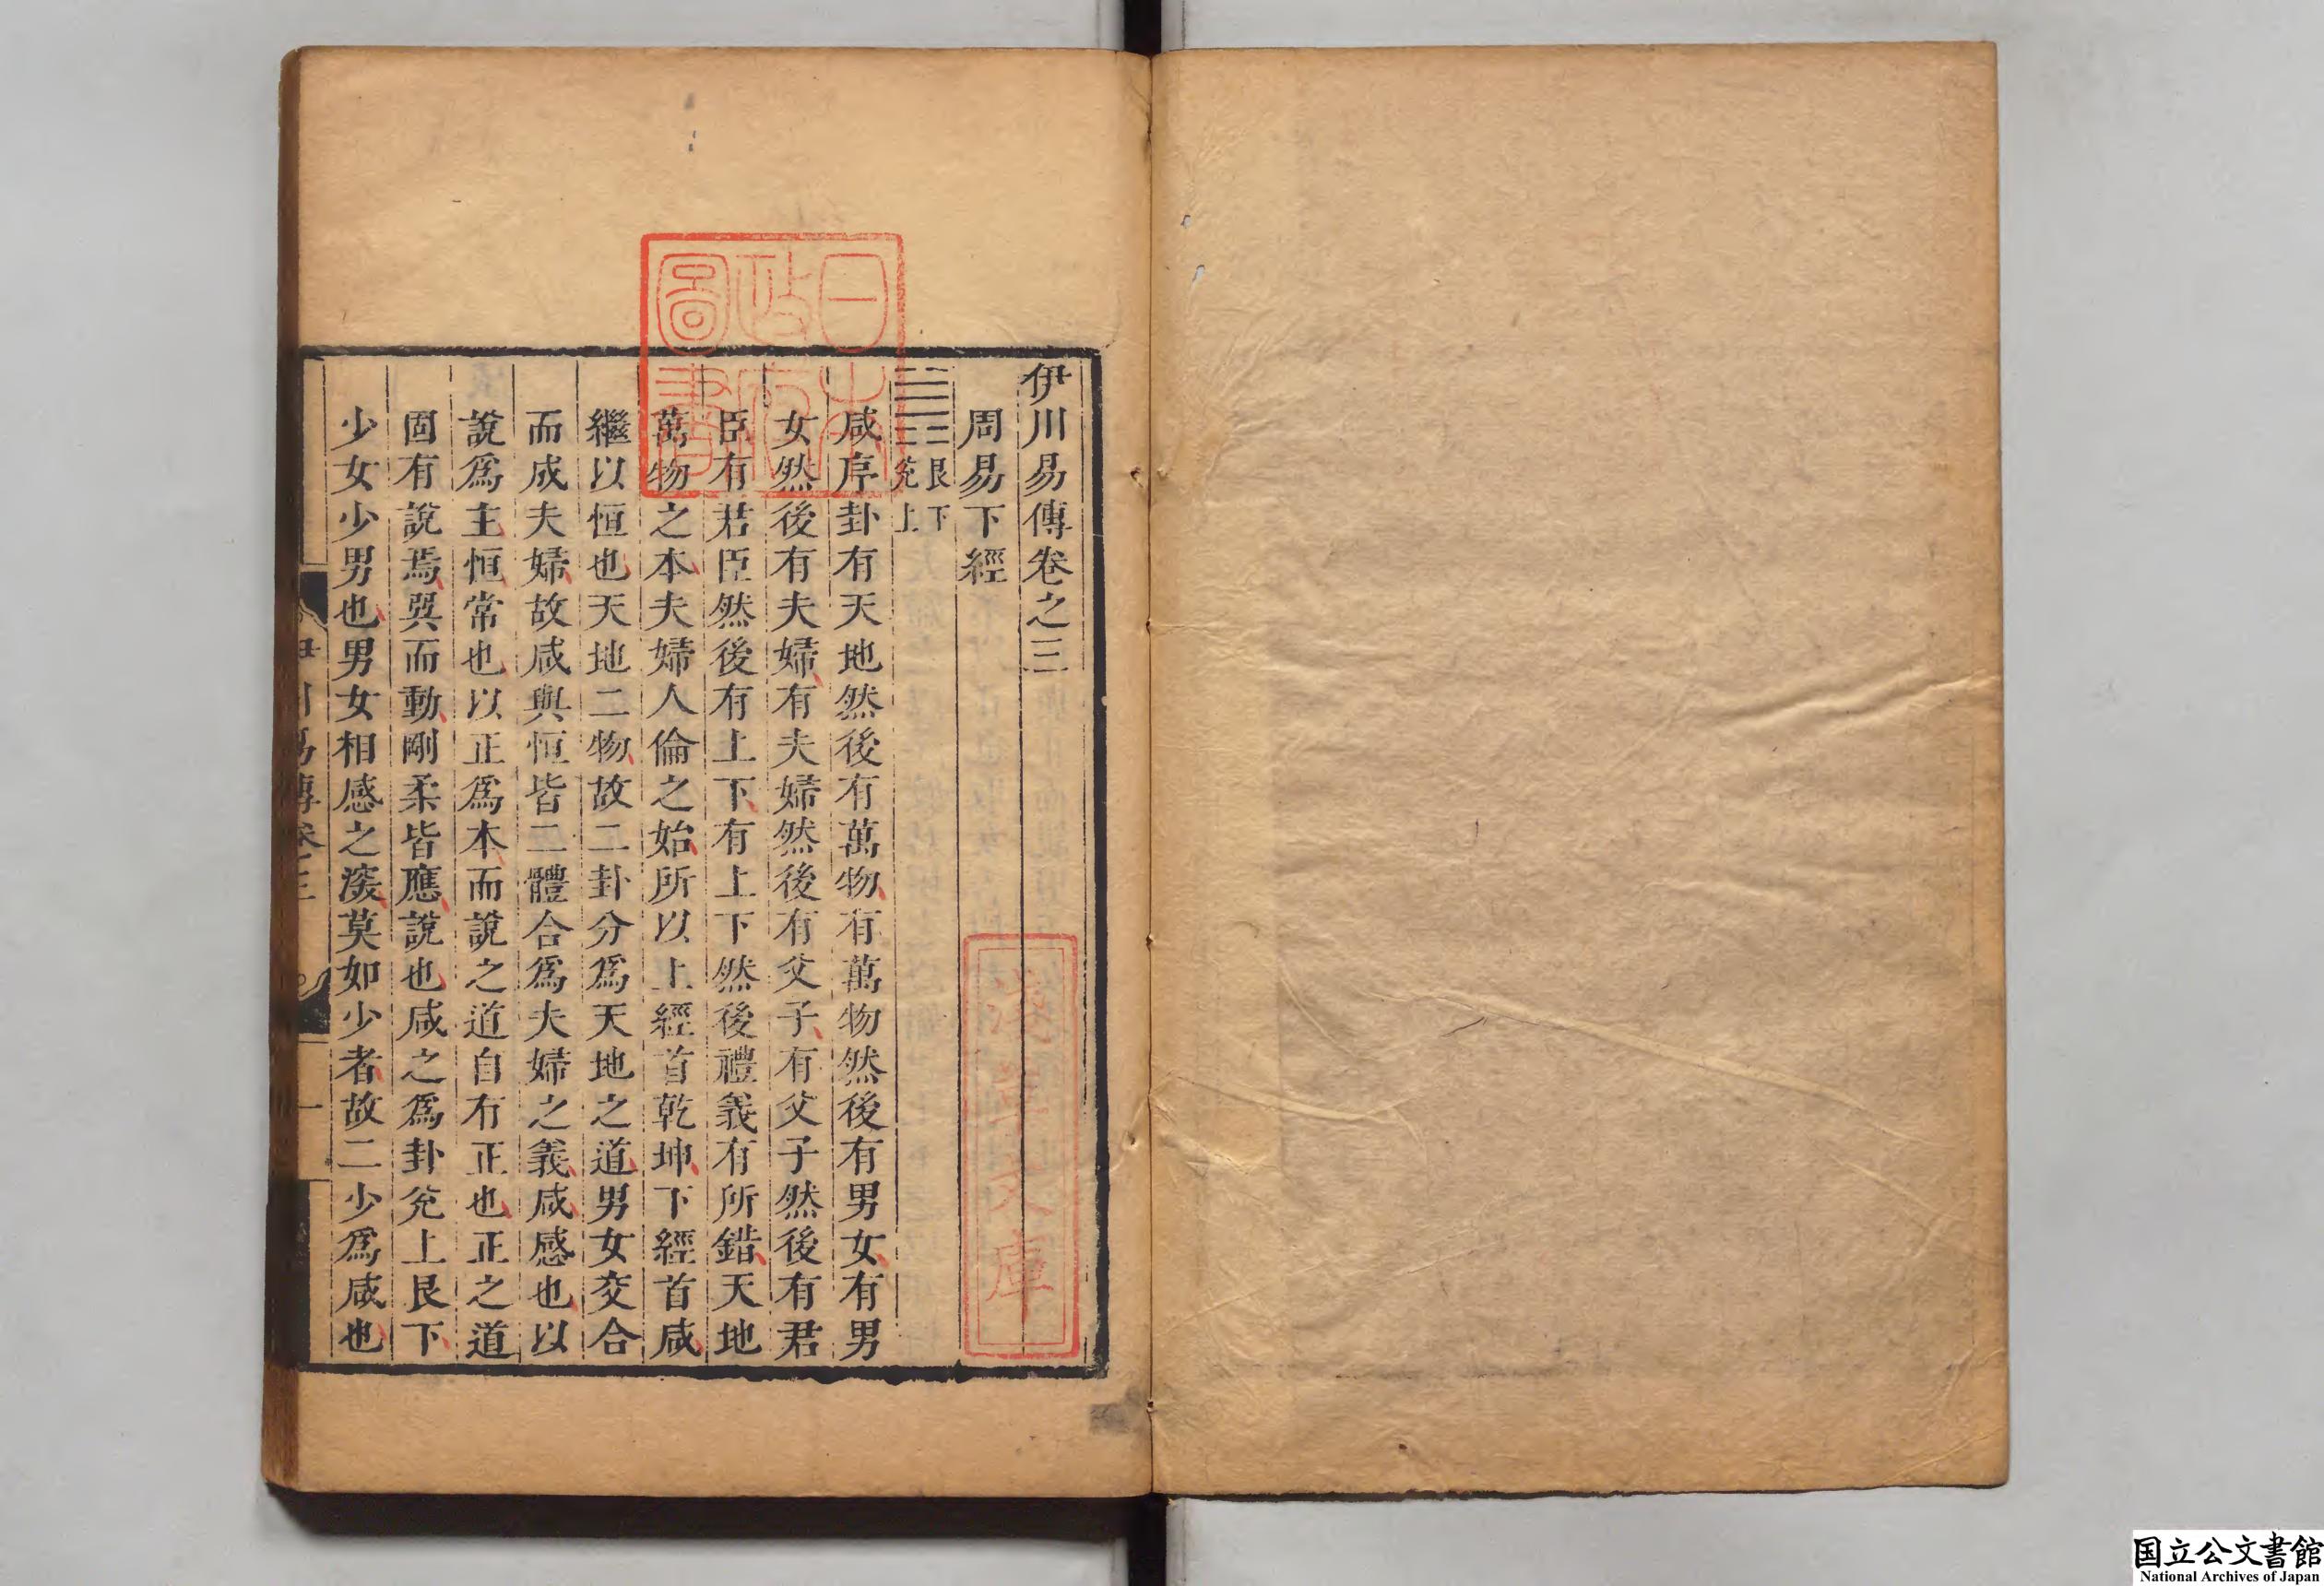 伊川易傳卷之三
周易下經
艮下
兌上
咸序卦有天地然後有萬物有萬物然後有男女有男
女然後有夫婦有夫婦然後有父子有父子然後有君
臣有君臣然後有上下有上下然後禮義有所錯天地
萬物之本夫婦人倫之始所以上經首乾坤下經首咸
繼以恒也天地二物故二卦分爲天地之道男女交合
而成夫婦故咸與恒皆二體合爲夫婦之義咸感也以
說爲主恒常也以正爲本而說之道自有正也正之道
固有說焉巽而動剛柔皆應說也咸之爲卦兌上艮下
少女少男也男女相感之深莫如少者故二少爲咸也
伊川易傳卷三
一
日本政府圖書
淺草文庫
国立公文書館
National Archives of Japan